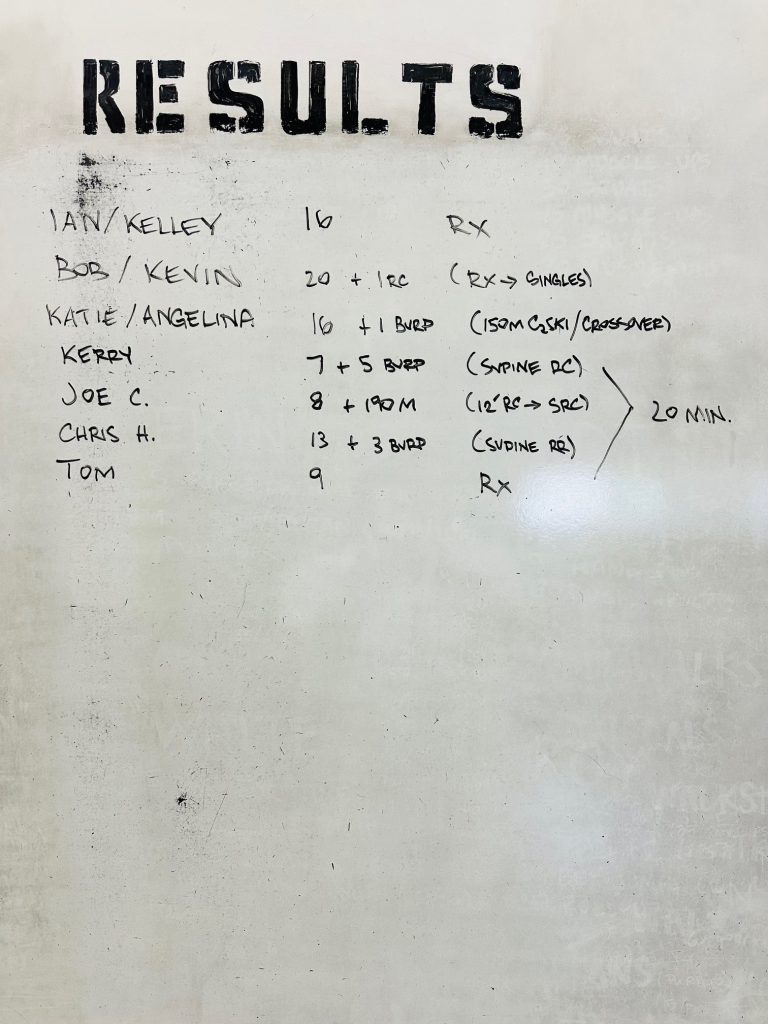 RESULTS
IAN/KELLEY 16 RX
BOB / KEVIN 20 + 1RC (RX → SINGLES)
KATIE/ANGELINA 16 + 1 BURP (150M C2SKI/CROSSOVER)
KERRY 7 + 5 BURP (SUPINE RC)
JOE C. 8 + 190 M (12' RC → SRC)
20 MIN.
CHRIS H. 13 + 3 BURP (SUPINE RR)
TOM 9 RX